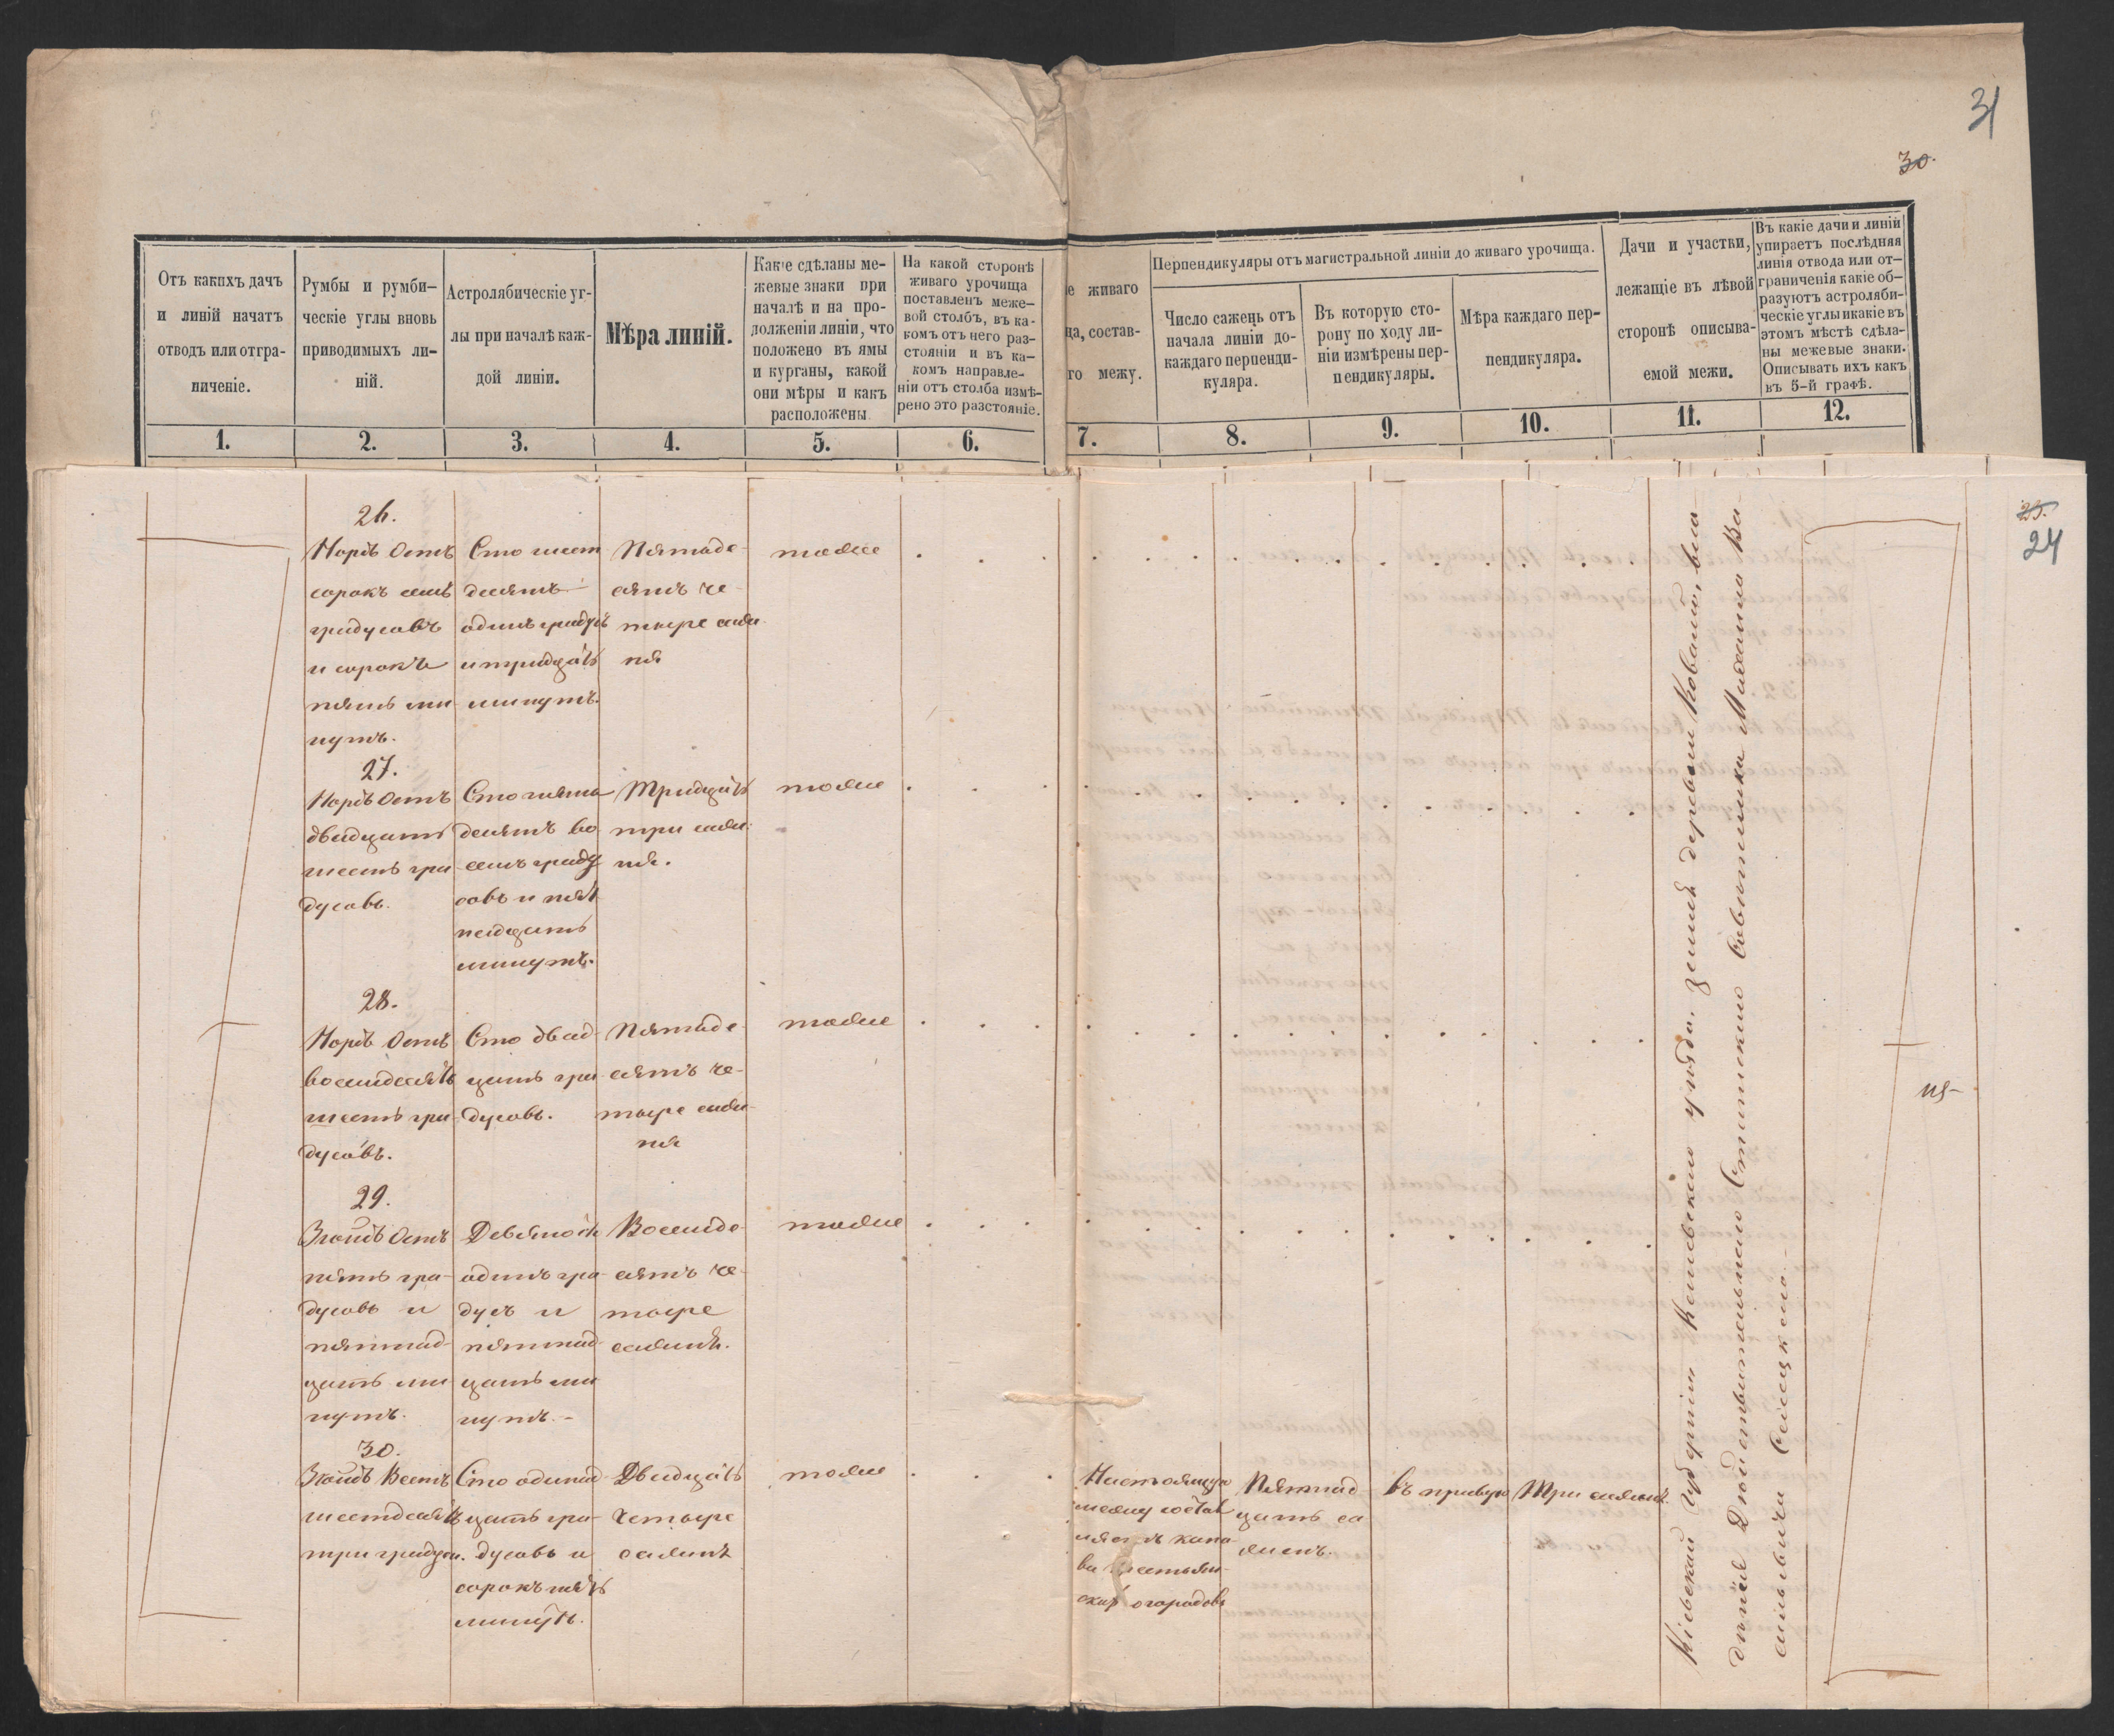 31
30.
Отъ какихъ дачъ
и линій начатъ
отводъ или отгра-
ниченіе.
Румбы и румби-
ческіе углы вновь
приводимыхъ ли-
ній.
Астролябическіе уг-
лы при началѣ каж-
дой линіи.
Мѣра линій.
Какіе сдѣланы ме-
жевые знаки при
началѣ и на про-
долженіи линіи, что
положено въ ямы
и курганы, какой
они мѣры и какъ
расположены.
На какой сторонѣ
живаго урочища
поставленъ меже-
вой столбъ, въ ка-
комъ отъ него раз-
стояніи и въ ка-
комъ направле-
ніи отъ столба измѣ-
рено это разстояніе.
е живаго
ща, состав-
го межу.
Перпендикуляры отъ магистральной линіи до живаго урочища.
Число сажень отъ
начала линіи до
каждаго перпенди-
куляра.
Въ которую сто-
рону по ходу ли-
ніи измѣрены пер-
пендикуляры.
Мѣра каждаго пер-
пендикуляра.
Дачи и участки,
лежащіе въ лѣвой
сторонѣ описыва-
емой межи.
Въ какіе дачи и линіи
упираетъ послѣдняя
линія отвода или от-
граниченія какіе об-
разуютъ астроляби-
ческіе углы и какіе въ
этомъ мѣстѣ сдѣла-
ны межевые знаки.
Описывать ихъ какъ
въ 5-й графѣ.
1. 2. 3. 4. 5. 6. 7. 8. 9. 10. 11. 12.
25.
24
26.
Нордъ Остъ
сорокъ семь
градусовъ
и сорокъ
пять ми
нутъ.
Сто шест
десятъ
одинъ градусъ
и тридцать
минутъ.
Пятьде
сятъ че-
тыре саже
ня
тоже
27.
Нордъ Остъ
двадцать
шесть гра
дусовъ.
Сто пять
десятъ во
семь граду
совъ и пят
надцать
минутъ.
Тридцать
три саже
ня.
тоже
28.
Нордъ Остъ
восемдесятъ
шесть гра
дусовъ.
Сто двад
цать гра
дусовъ.
Пятьде
сятъ че-
тыре саже
ня
тоже
29.
Зюйдъ Остъ
пять гра-
дусовъ и
пятнад-
цать ми
нутъ.
Девяносто
одинъ гра
дусъ и
пятнад
цать ми
нутъ.-
Восемьде
сятъ че-
тыре
сажени.
тоже
30.
Зюйдъ Вестъ
шестдесятъ
три градуса.
Сто одинад
цать гра-
дусовъ и
сорокъ пять
минутъ.
Двадцать
четыре
сажени
тоже
Настоящую
межу состав
ляетъ кана
ва крестьян
скихъ огородовъ
Пятнад
цать са
жень.
въ правую
Три сажени.
Кіевской губерніи Каневскаго уѣзда, земли деревни Ковалей, вла
дѣнія Дѣйствительнаго Статскаго Совѣтника Михаила Ва-
сильевича Селецкаго.